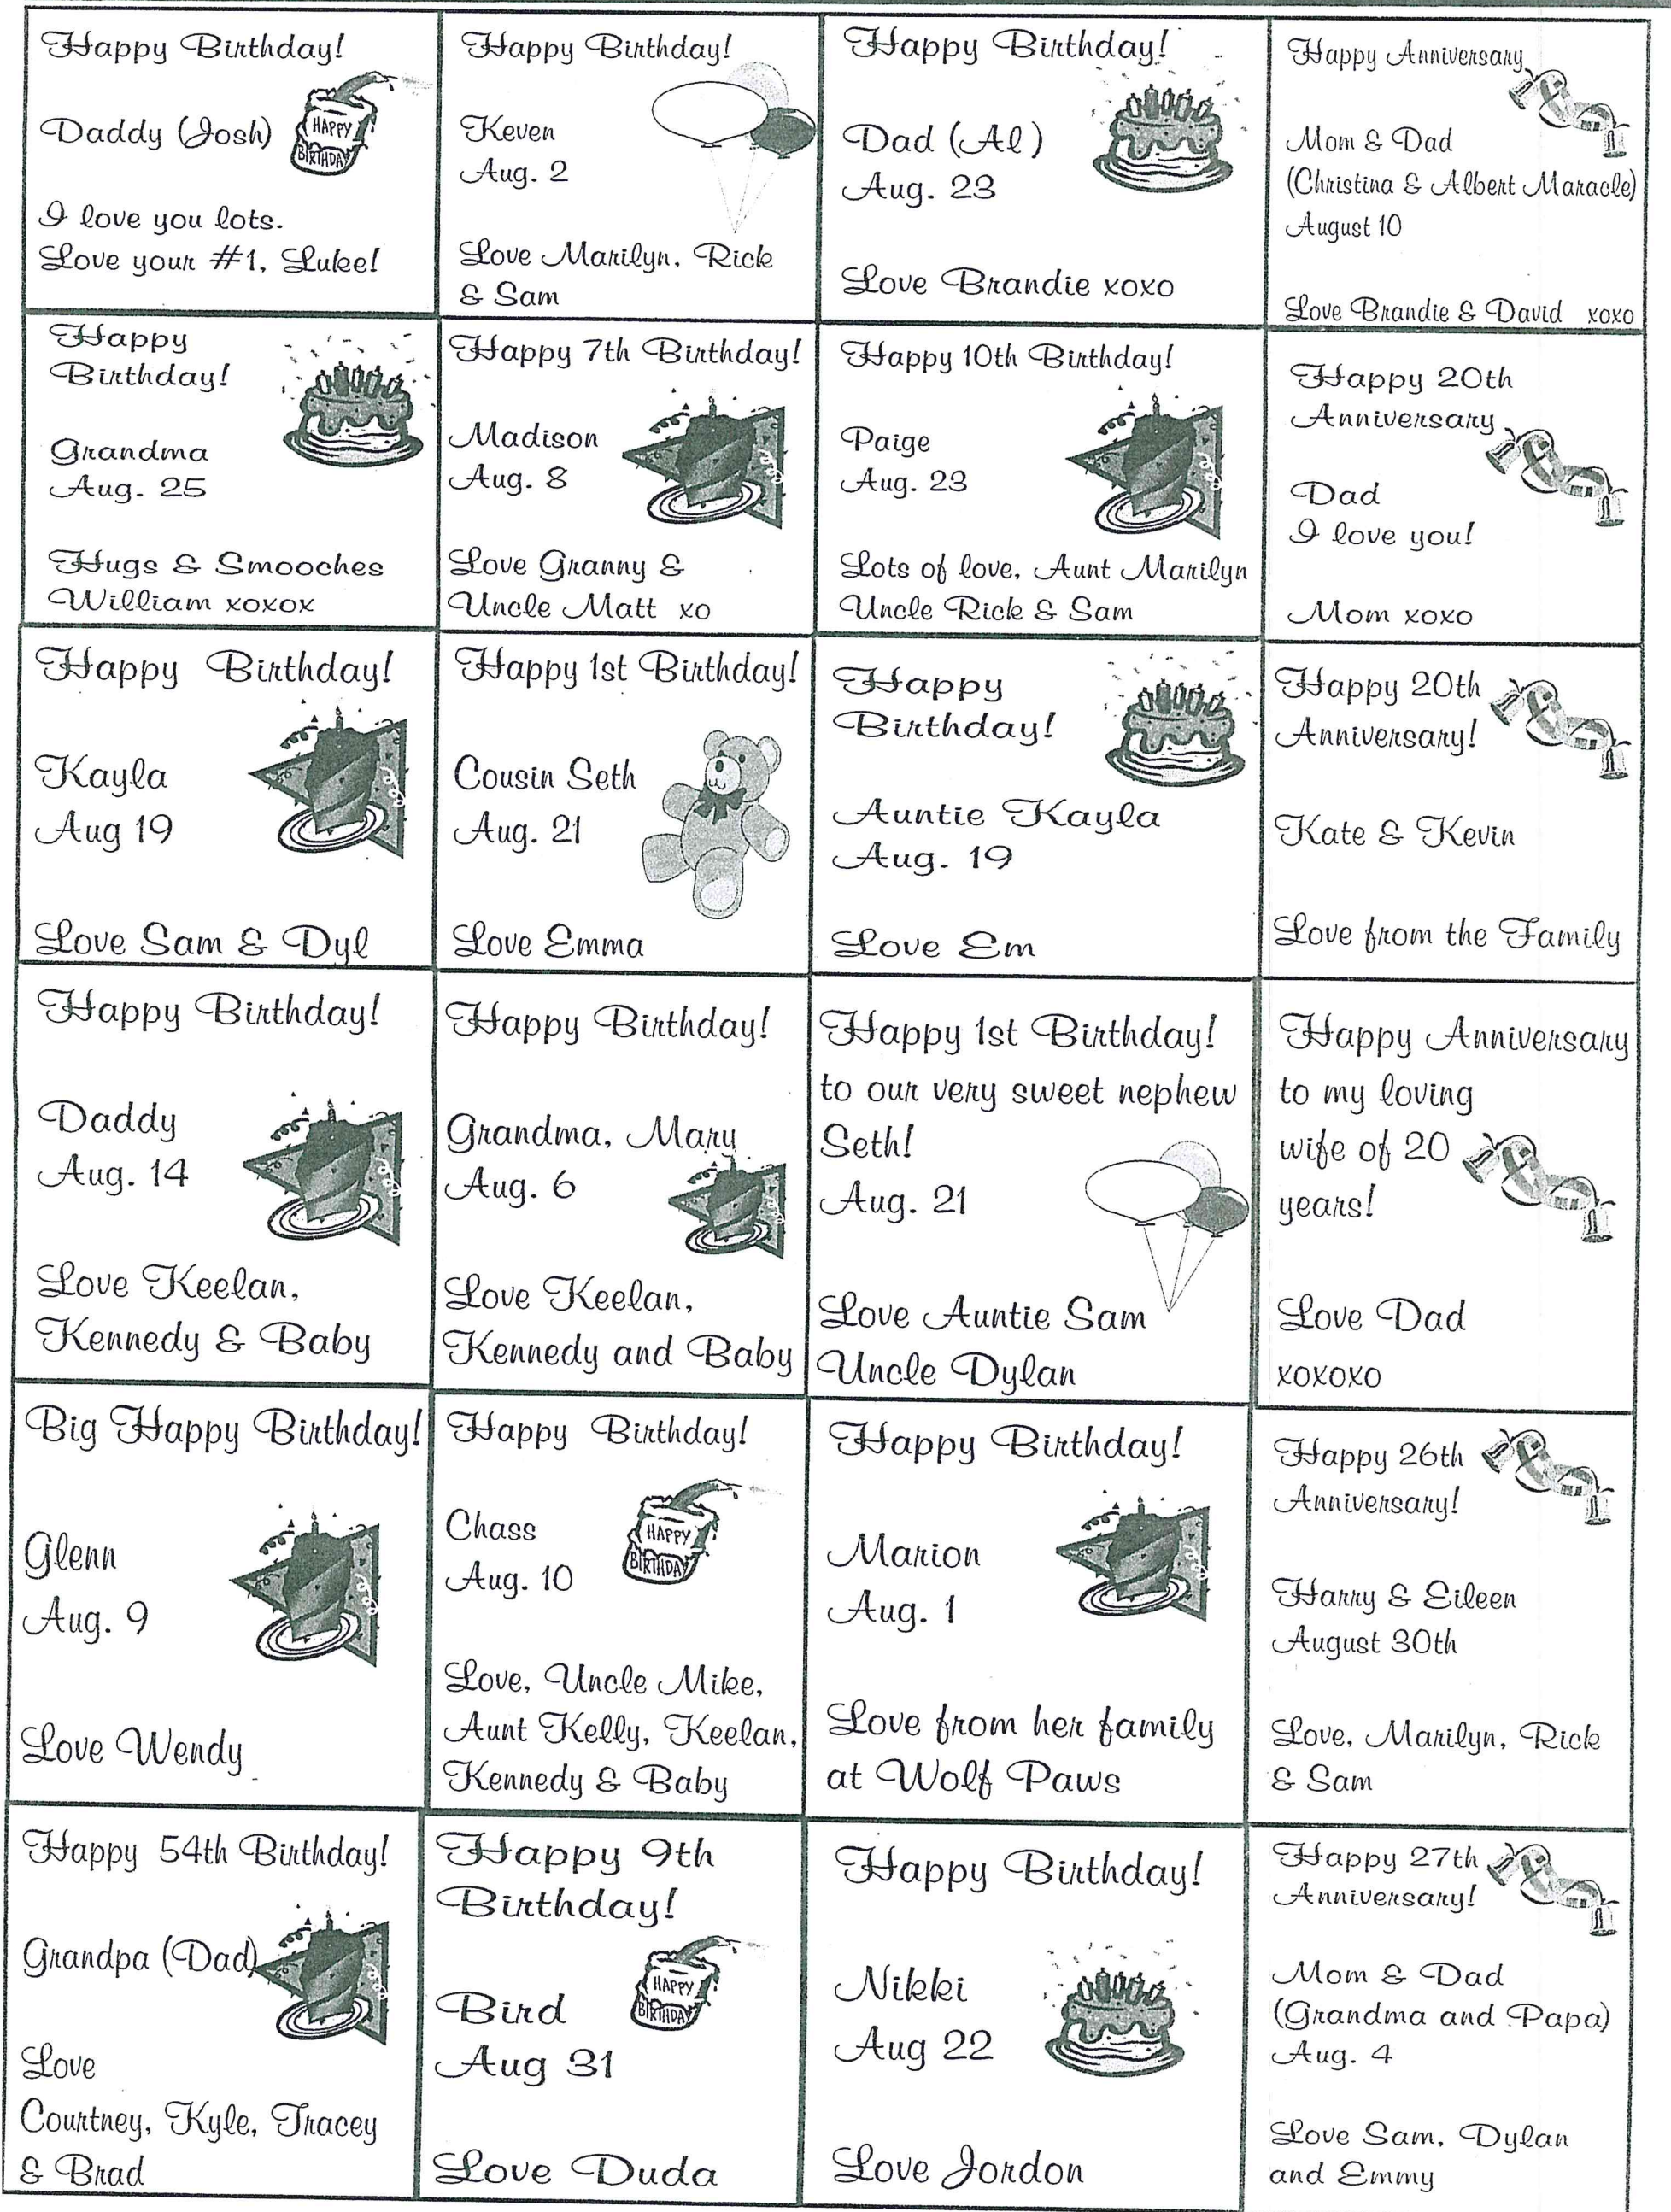 Happy Birthday!
Daddy (Josh)
HAPPY
BIRTHDAY
I love you lots.
Love your #1, Luke!
Happy Birthday!
Keven
Aug. 2
Love Marilyn, Rick
& Sam
Happy Birthday!
Dad (Al)
Aug. 23
Love Brandie xoxo
Happy Anniversary
Mom & Dad
(Christina & Albert Maracle)
August 10
Love Brandie & David xoxo
Happy
Birthday!
Grandma
Aug. 25
Hugs & Smooches
William xoxox
Happy 7th Birthday!
Madison
Aug. 8
Love Granny &
Uncle Matt xo
Happy 10th Birthday!
Paige
Aug. 23
Lots of love, Aunt Marilyn
Uncle Rick & Sam
Happy 20th
Anniversary
Dad
I love you!
Mom xoxo
Happy Birthday!
Kayla
Aug 19
Love Sam & Dyl
Happy 1st Birthday!
Cousin Seth
Aug. 21
Love Emma
Happy
Birthday!
Auntie Kayla
Aug. 19
Love Em
Happy 20th
Anniversary!
Kate & Kevin
Love from the Family
Happy Birthday!
Daddy
Aug. 14
Love Keelan,
Kennedy & Baby
Happy Birthday!
Grandma, Mary
Aug. 6
Love Keelan,
Kennedy and Baby
Happy 1st Birthday!
to our very sweet nephew
Seth!
Aug. 21
Love Auntie Sam
Uncle Dylan
Happy Anniversary
to my loving
wife of 20
years!
Love Dad
xoxoxo
Big Happy Birthday!
Glenn
Aug. 9
Love Wendy
Happy Birthday!
Chass
Aug. 10
HAPPY
BIRTHDAY
Love, Uncle Mike,
Aunt Kelly, Keelan,
Kennedy & Baby
Happy Birthday!
Marion
Aug. 1
Love from her family
at Wolf Paws
Happy 26th
Anniversary!
Harry & Eileen
August 30th
Love, Marilyn, Rick
& Sam
Happy 54th Birthday!
Grandpa (Dad)
Love
Courtney, Kyle, Tracey
& Brad
Happy 9th
Birthday!
Bird
Aug 31
HAPPY
BIRTHDAY
Love Duda
Happy Birthday!
Nikki
Aug 22
Love Jordon
Happy 27th
Anniversary!
Mom & Dad
(Grandma and Papa)
Aug. 4
Love Sam, Dylan
and Emmy